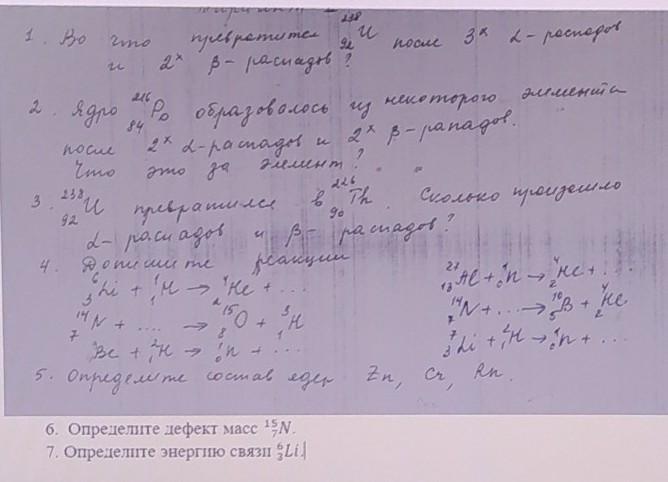 1. Во что превратится ²³⁸₉₂U после 3ˣ α-распадов
и 2ˣ β-распадов?
2. Ядро ²¹⁶₈₄Po образовалось из некоторого элемента
после 2ˣ α-распадов и 2ˣ β-рападов.
Что это за элемент?
3. ²³⁸₉₂U превратился в ²²⁶₉₀Th. Сколько произошло
α-распадов и β-распадов?
4. Допишите реакции
⁶₃Li + ¹₁H → ⁴₂He + ... ²⁷₁₃Al + ¹₀n → ⁴₂He + ...
¹⁴₇N + .... → ¹⁵₈O + ³₁H ¹⁴₇N + ... → ¹⁰₅B + ⁴₂He
Be + ²₁H → ¹₀n + ... ⁷₃Li + ²₁H → ¹₀n + ...
5. Определите состав ядер Zn, Cr, Rn.
6. Определите дефект масс ¹⁵₇N.
7. Определите энергию связи ⁶₃Li.